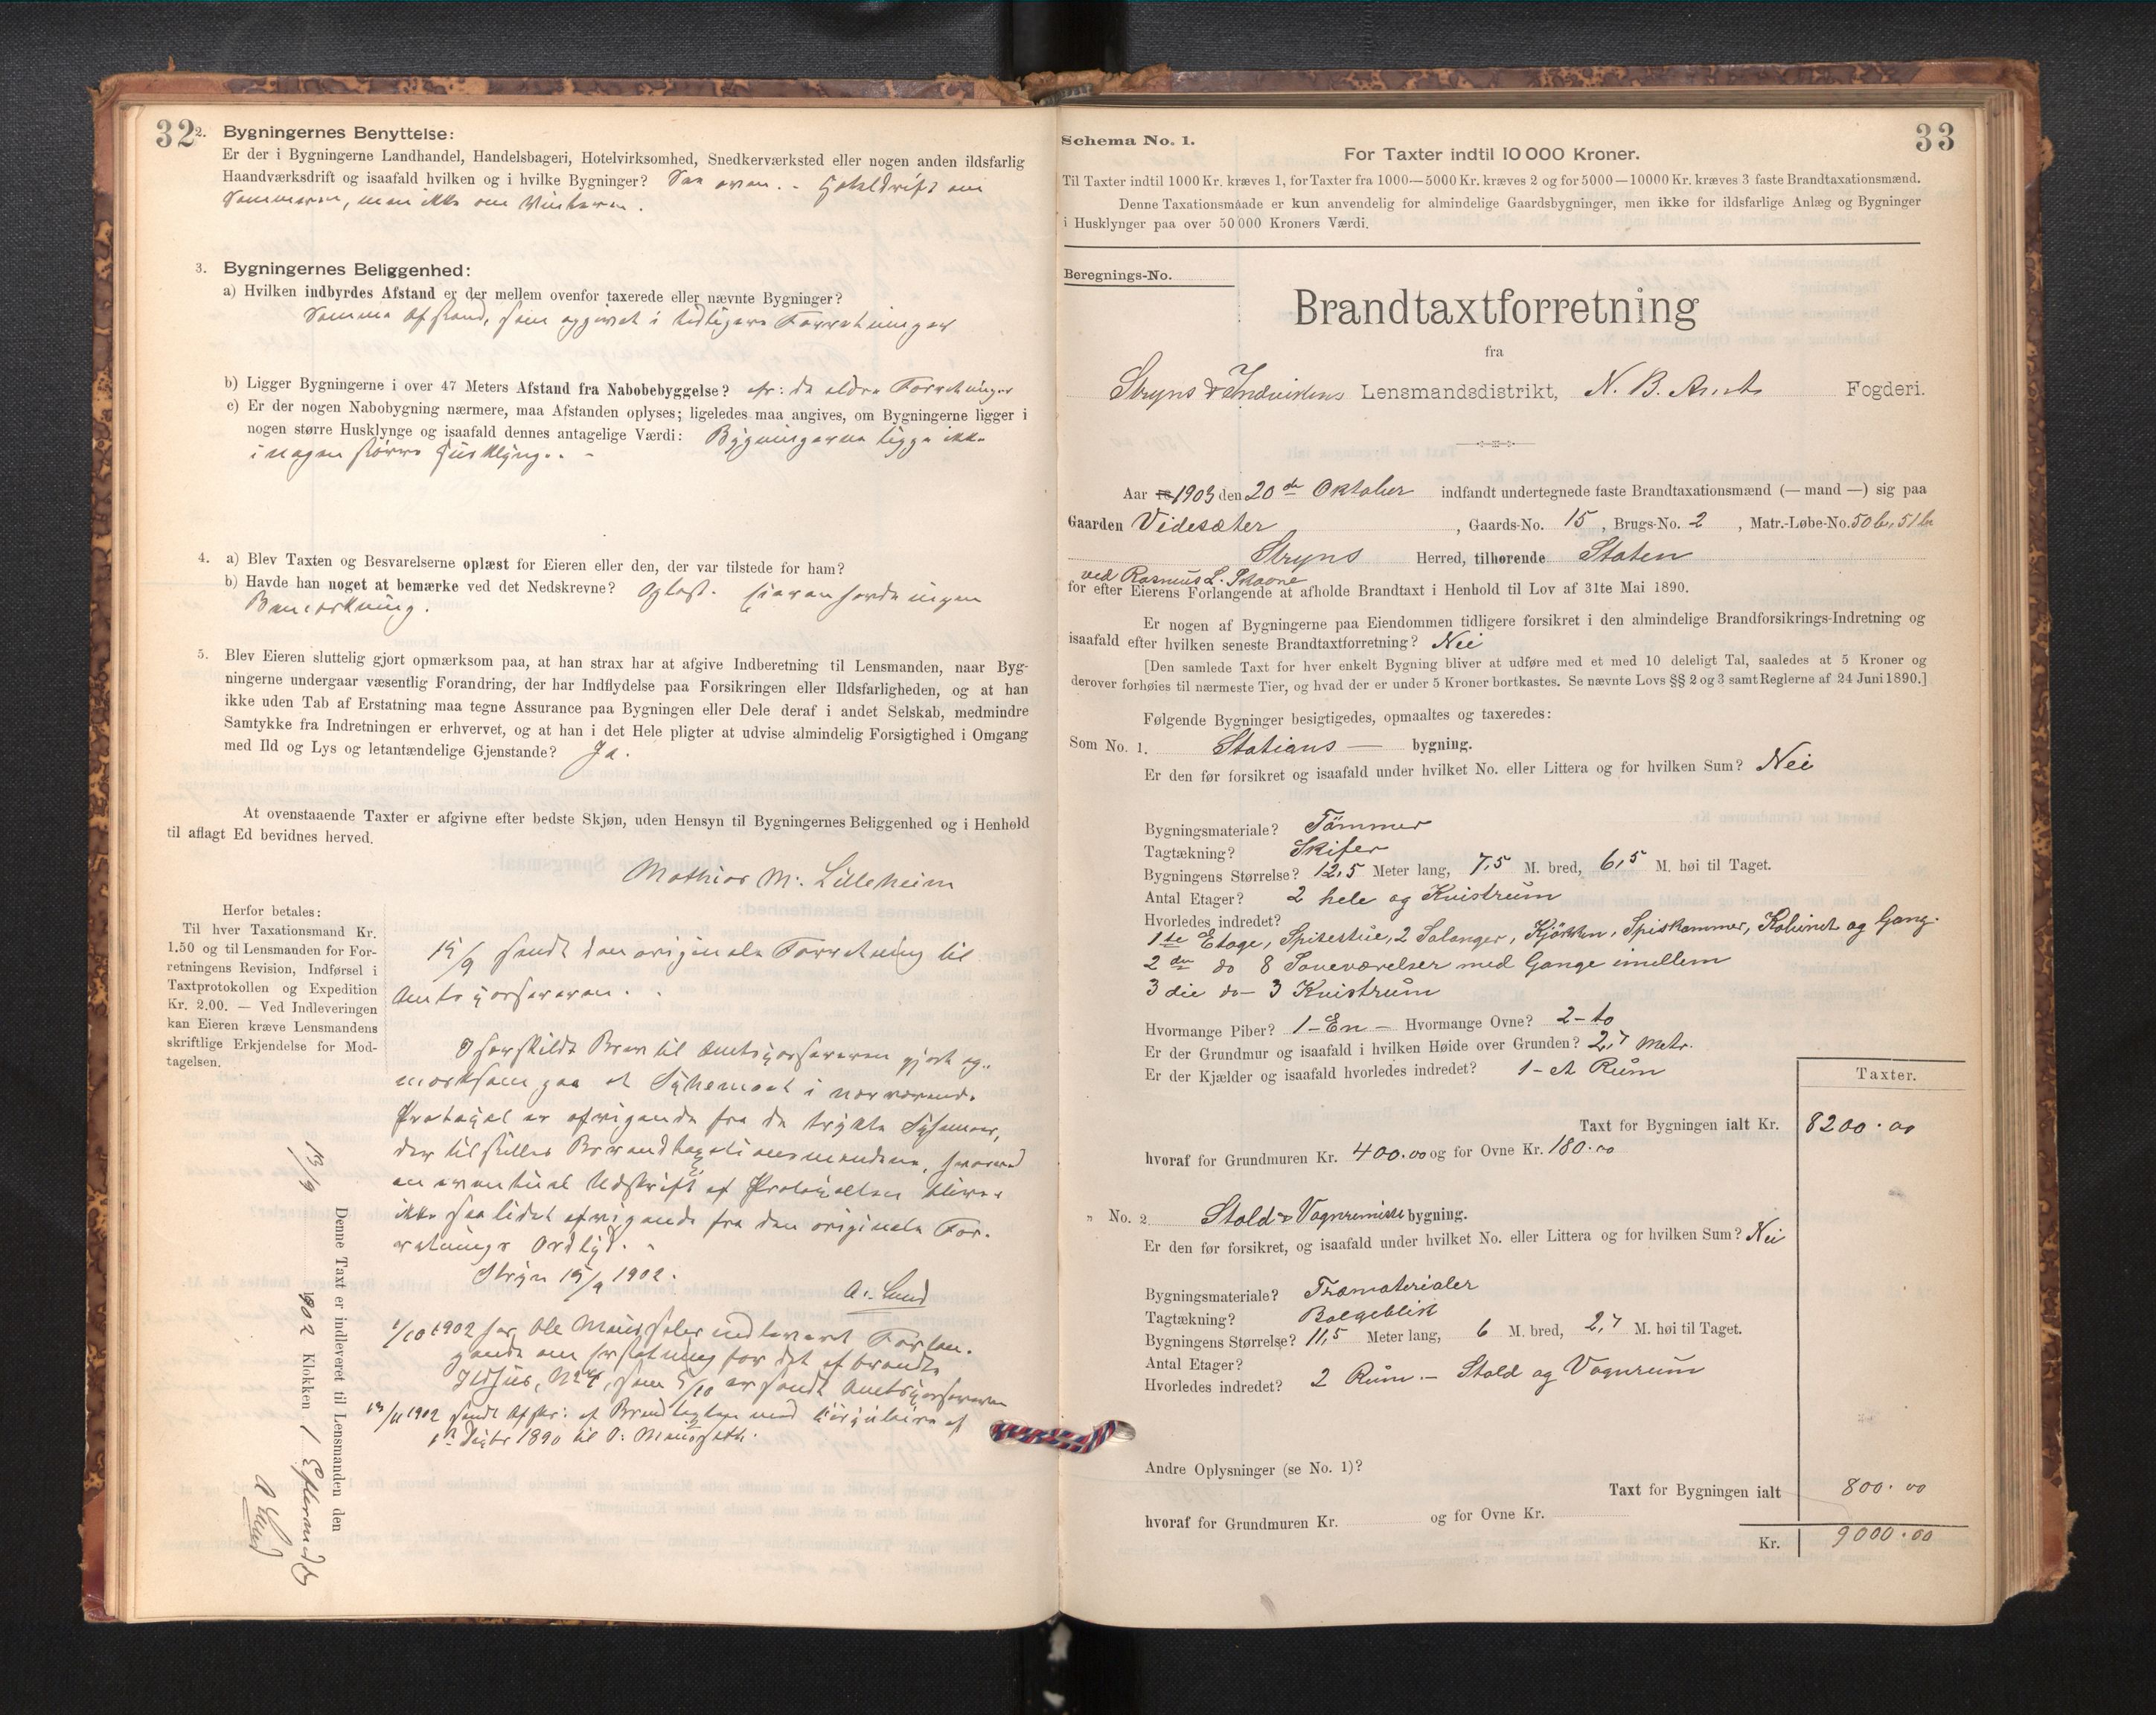 32
2. Bygningernes Benyttelse:
Er der i Bygningerne Landhandel, Handelsbageri, Hotelvirksomhed, Snedkerværksted eller nogen anden ildsfarlig
Haandværksdrift og isaafald hvilken og i hvilke Bygninger? Se oven. - Hoteldrift om
Sommeren, men ikke om Vinteren.
3. Bygningernes Beliggenhed:
a) Hvilken indbyrdes Afstand er der mellem ovenfor taxerede eller nævnte Bygninger?
Samme Afstand, som opgivet i tidligere Forretninger
b) Ligger Bygningerne i over 47 Meters Afstand fra Nabobebyggelse? cfr: de ældre Forretninger
c) Er der nogen Nabobygning nærmere, maa Afstanden oplyses; ligeledes maa angives, om Bygningerne ligger i
nogen større Husklynge og isaafald dennes antagelige Værdi: Bygningerne ligge ikke
i nogen større Husklynge. -
4. a) Blev Taxten og Besvarelserne oplæst for Eieren eller den, der var tilstede for ham?
b) Havde han noget at bemærke ved det Nedskrevne? Oplæst. Eieren havde ingen
Bemærkning.
5. Blev Eieren sluttelig gjort opmærksom paa, at han strax har at afgive Indberetning til Lensmanden, naar Byg-
ningerne undergaar væsentlig Forandring, der har Indflydelse paa Forsikringen eller Ildsfarligheden, og at han
ikke uden Tab af Erstatning maa tegne Assurance paa Bygningen eller Dele deraf i andet Selskab, medmindre
Samtykke fra Indretningen er erhvervet, og at han i det Hele pligter at udvise almindelig Forsigtighed i Omgang
med Ild og Lys og letantændelige Gjenstande? Ja.
At ovenstaaende Taxter er afgivne efter bedste Skjøn, uden Hensyn til Bygningernes Beliggenhed og i Henhold
til aflagt Ed bevidnes herved.
Mathias M. Lilleheim
Herfor betales:
Til hver Taxationsmand Kr.
1.50 og til Lensmanden for For-
retningens Revision, Indførsel i
Taxtprotokollen og Expedition
Kr. 2.00. — Ved Indleveringen
kan Eieren kræve Lensmandens
skriftlige Erkjendelse for Mod-
tagelsen.
15/9 sendt den originale Forretning til
Amtsforvareren. -
I særskildt Brev til Amtsforvareren gjort op-
mærksom paa at Schemaet i nærværende
Protocol er afvigende fra de trykte Schemaer,
der tilstilles Brandtaxationsmændene, hvorved
en eventuel Udskrift af Protocollen bliver
ikke saa lidet afvigende fra den originale For-
retnings Ordlyd. -
Stryn 15/9 1902.
A. Lund
1/10 1902 har Ole indleveret Forlan-
gende om Erstatning for det afbrændte
Ildhus, No 4, som 5/10 er sendt Amtsforvareren
13/11 1902 sendt Afskr: af Brandtaxten med Cirkulære af
1890 til O:
Denne Taxt er indleveret til Lensmanden den
13/9 1902 Klokken 1 Eftermiddag
A Lund
33
Schema No. 1.
For Taxter indtil 10 000 Kroner.
Til Taxter indtil 1000 Kr. kræves 1, for Taxter fra 1000—5000 Kr. kræves 2 og for 5000—10000 Kr. kræves 3 faste Brandtaxationsmænd.
Denne Taxationsmaade er kun anvendelig for almindelige Gaardsbygninger, men ikke for ildsfarlige Anlæg og Bygninger
i Husklynger paa over 50 000 Kroners Værdi.
Beregnings-No.
Brandtaxtforretning
fra
Stryns & Indvikens Lensmandsdistrikt, N. B. Amts Fogderi.
Aar 18 1903 den 20de Oktober indfandt undertegnede faste Brandtaxationsmænd (— mand —) sig paa
Gaarden Videsæter, Gaards-No. 15, Brugs-No. 2, Matr.-Løbe-No. 50 b., 51 b
Stryns Herred, tilhørende Staten
ved Rasmus L. Skaare
for efter Eierens Forlangende at afholde Brandtaxt i Henhold til Lov af 31te Mai 1890.
Er nogen af Bygningerne paa Eiendommen tidligere forsikret i den almindelige Brandforsikrings-Indretning og
isaafald efter hvilken seneste Brandtaxtforretning? Nei
[Den samlede Taxt for hver enkelt Bygning bliver at udføre med et med 10 deleligt Tal, saaledes at 5 Kroner og
derover forhøies til nærmeste Tier, og hvad der er under 5 Kroner bortkastes. Se nævnte Lovs §§ 2 og 3 samt Reglerne af 24 Juni 1890.]
Følgende Bygninger besigtigedes, opmaaltes og taxeredes:
Som No. 1. Stations — bygning.
Er den før forsikret og isaafald under hvilket No. eller Littera og for hvilken Sum? Nei
Bygningsmateriale? Tømmer
Tagtækning? Skifer
Bygningens Størrelse? 12,5 Meter lang, 7,5 M. bred, 6,5 M. høi til Taget.
Antal Etager? 2 hele og Kvistrum
Hvorledes indredet?
1ste Etage, Spisestue, 2 Salonger, Kjökken, Spiskammer, Kabinet og Gang.
2den do 8 Soveværelser med Gange imellem
3die do - 3 Kvistrum
Hvormange Piber? 1 - En — Hvormange Ovne? 2 - to
Er der Grundmur og isaafald i hvilken Høide over Grunden? 2,7 Metr.
Er der Kjælder og isaafald hvorledes indredet? 1 - et Rum
Taxter.
Taxt for Bygningen ialt Kr. 8200.00
hvoraf for Grundmuren Kr. 400.00 og for Ovne Kr. 180.00
" No. 2 Stald & Vognremisse bygning.
Er den før forsikret, og isaafald under hvilket No. eller Littera og for hvilken Sum? Nei
Bygningsmateriale? Træmaterialer
Tagtækning? Bølgeblik
Bygningens Størrelse? 11,5 Meter lang, 6 M. bred, 2,7 M. høi til Taget.
Antal Etager?
Hvorledes indredet? 2 Rum. — Stald og Vognrum
Andre Oplysninger (se No. 1)?
Taxt for Bygningen ialt 800.00
hvoraf for Grundmuren Kr. og for Ovne Kr.
Kr. 9000.00